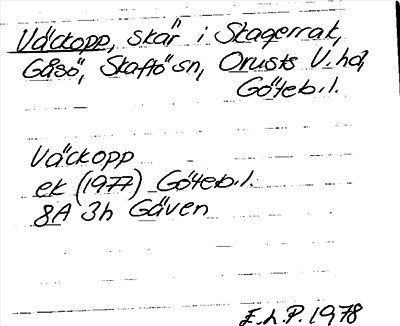 Väckopp, skär i Skagerrak,
Gåsö, Skaftö sn, Orusts V. hd,
Göteb. l.
Väckopp
ek (1977) Göteb. l.
8A 3h Gåven
E. h. P. 1978